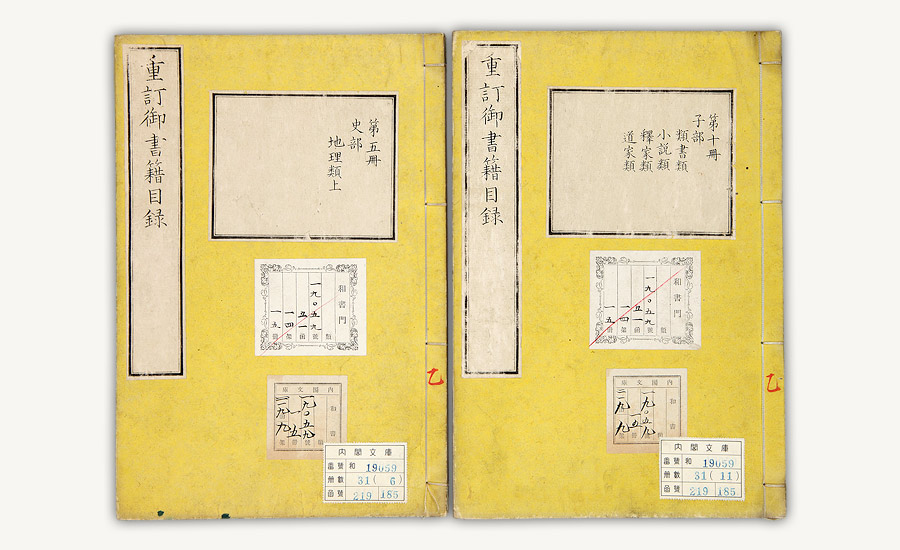 重訂御書籍目録
第五冊
史部
地理類上
和書門
類
一九〇五九
號
五一
函
一四
架
一五
冊
内閣文庫
和書
一九〇五九
號
類
一五
冊
架
内閣文庫
番號 和 19059
冊數 31( 6)
函號 219 185
乙
重訂御書籍目録
第十冊
子部
類書類
小説類
釋家類
道家類
和書門
類
一九〇五九
號
五一
函
一四
架
一五
冊
内閣文庫
和書
一九〇五九
號
類
一五
冊
架
内閣文庫
番號 和 19059
冊數 31(11)
函號 219 185
乙